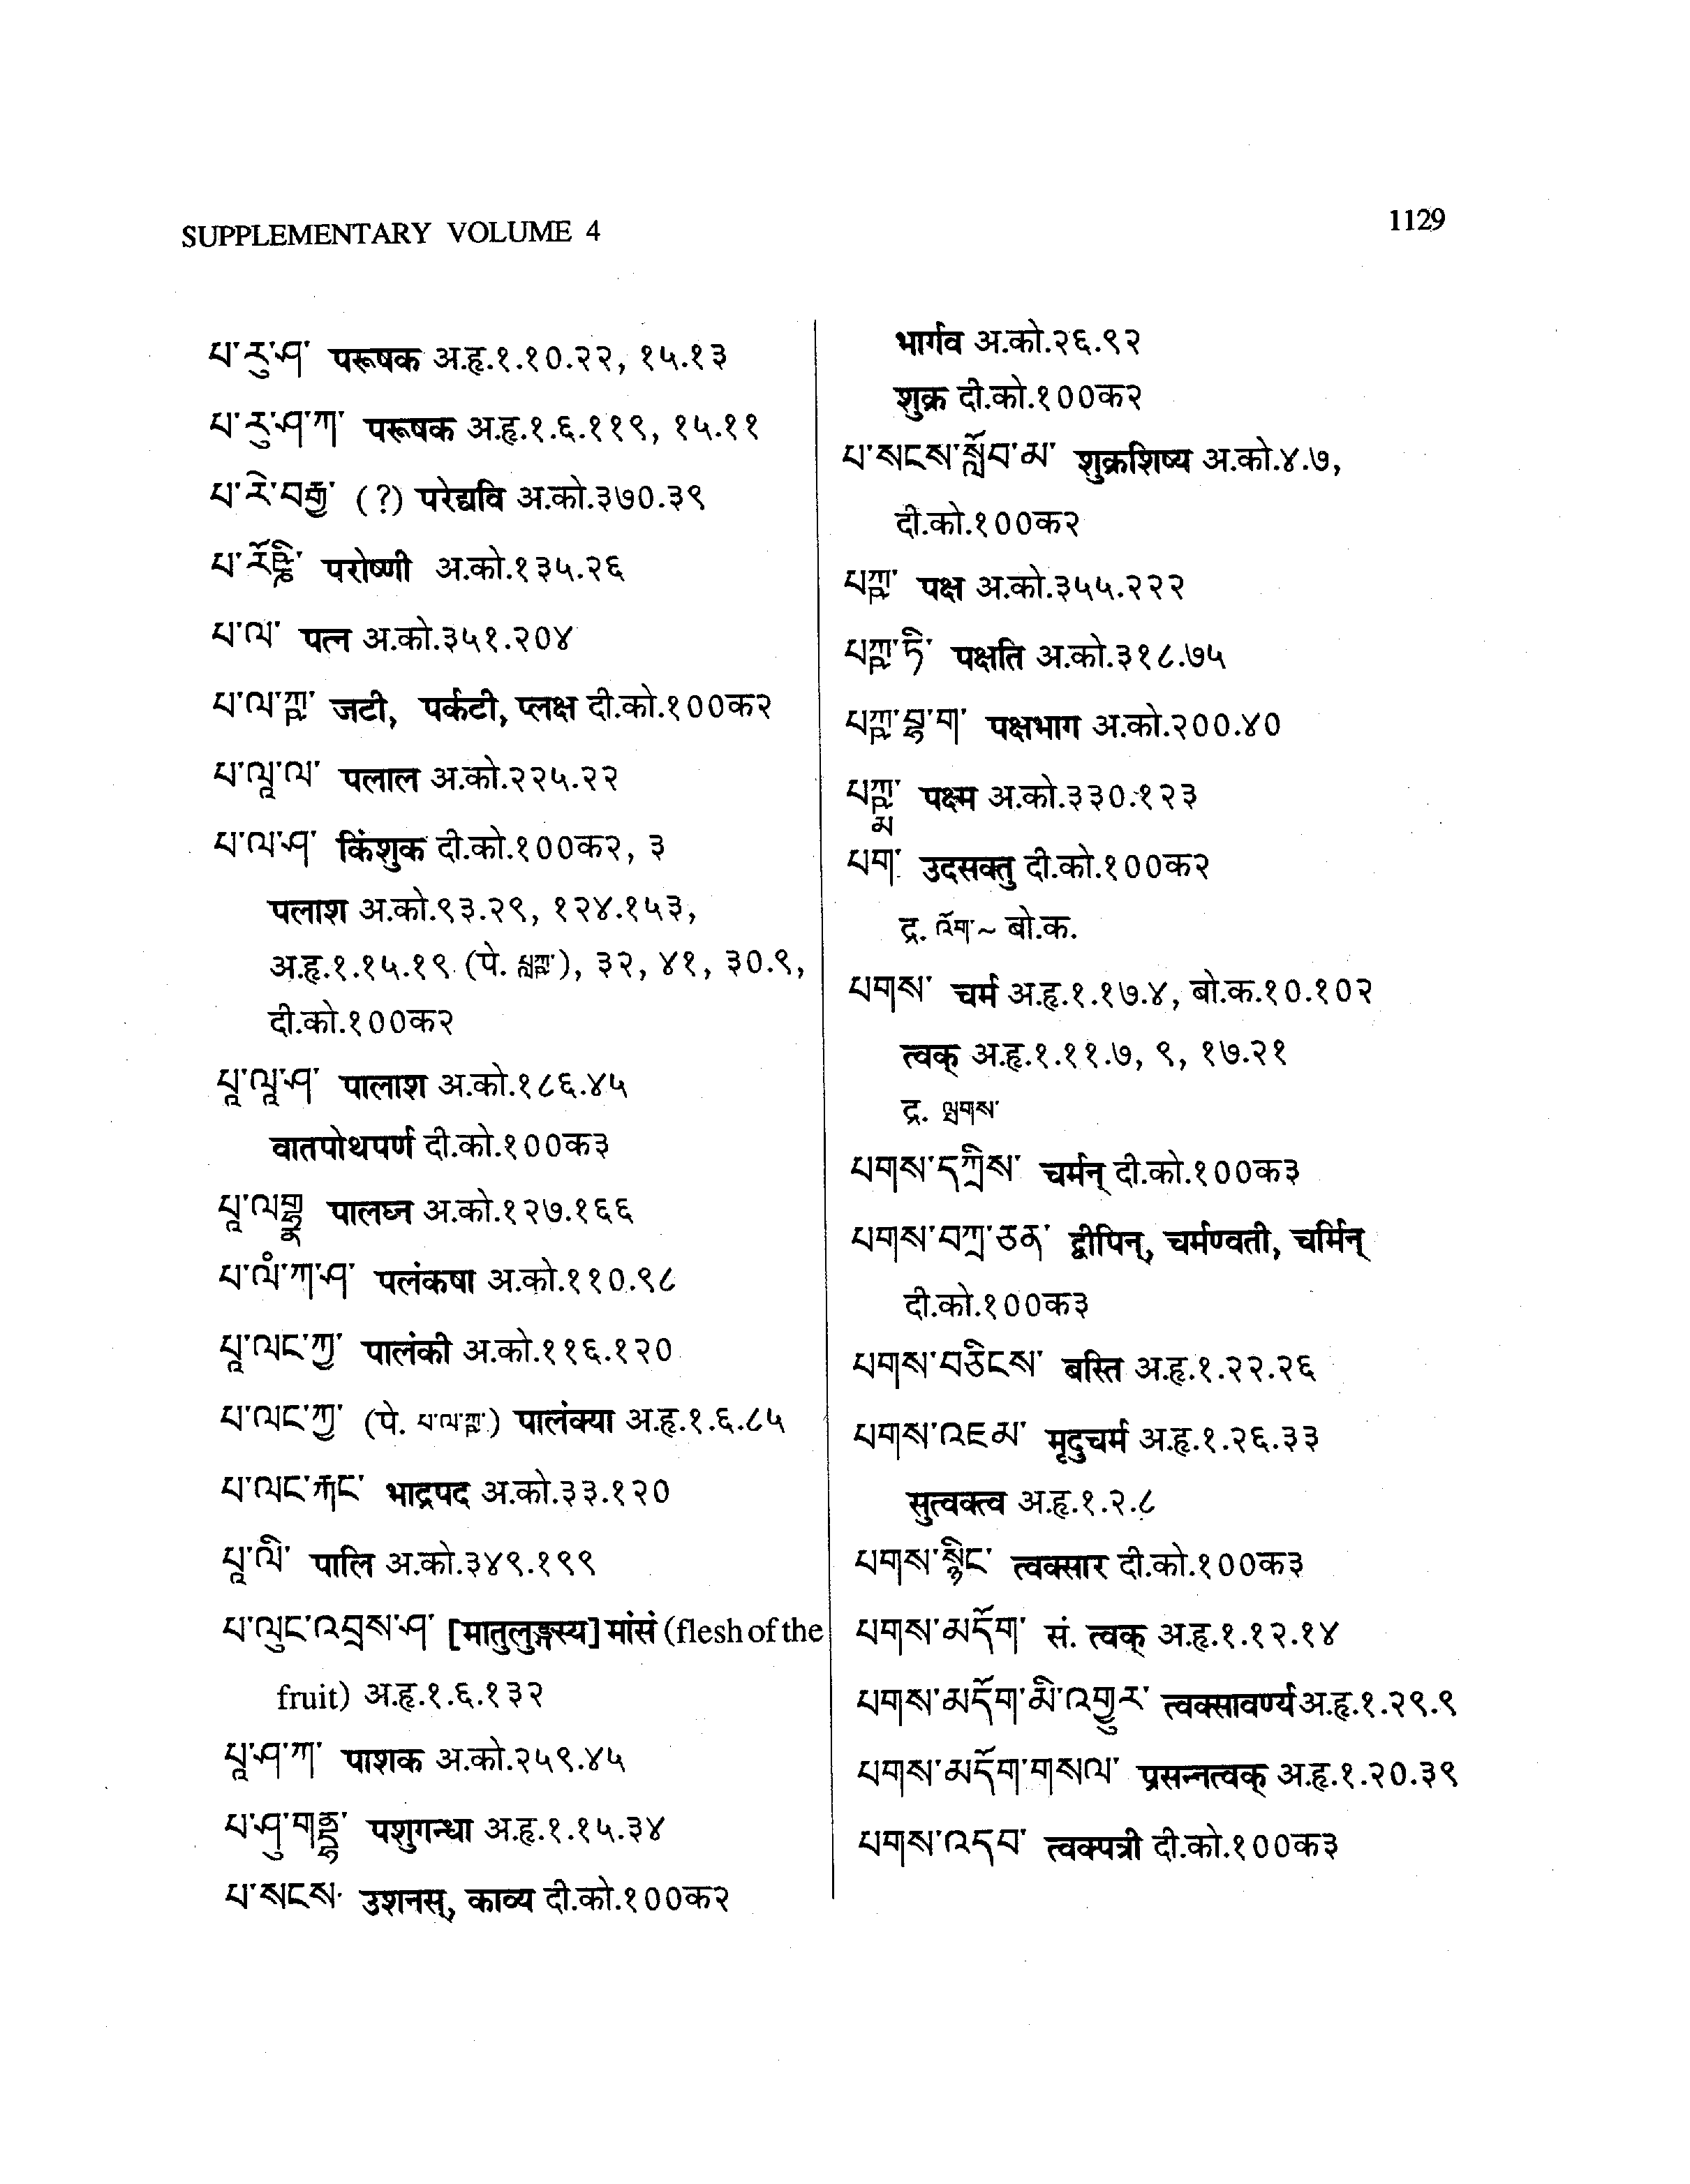 SUPPLEMENTARY VOLUME 4
1129
པ་རུ་ཤ་ परूषक अ.हृ.१.१०.२२, १५.१३
པ་རུ་ཤ་ཀ་ परूषक अ.हृ.१.६.११९, १५.११
པ་རེ་བརྒྱ་ (?) परेद्यवि अ.को.३७०.३९
परोष्णी अ.को.१३५.२६
པ་ལ་ पत्न अ.को.३५१.२०४
པ་ལ་ཀྵ་ जटी, पर्कटी, प्लक्ष दी.को.१००क२
པ་ལཱ་ལ་ पलाल अ.को.२२५.२२
པ་ལ་ཤ་ किंशुक दी.को.१००क२, ३
पलाश अ.को.९३.२९, १२४.१५३,
अ.हृ.१.१५.१९ (पे. ), ३२, ४१, ३०.९,
दी.को.१००क२
པཱ་ལཱ་ཤ་ पालाश अ.को.१८६.४५
वातपोथपर्ण दी.को.१००क३
པཱ་ལགྷྣ पालघ्न अ.को.१२७.१६६
པ་ལཾ་ཀ་ཤ་ पलंकषा अ.को.११०.९८
པཱ་ལང་ཀྱ་ पालंकी अ.को.११६.१२०
པ་ལང་ཀྱ་ (पे. པ་ལ་ཀྵ་) पालंक्या अ.हृ.१.६.८५
པ་ལང་རྐང་ भाद्रपद अ.को.३३.१२०
པཱ་ལི་ पालि अ.को.३४९.१९९
པ་ལུང་འབྲས་ཤ་ [मातुलुङ्गस्य] मांसं (flesh of the
fruit) अ.हृ.१.६.१३२
པཱ་ཤ་ཀ་ पाशक अ.को.२५९.४५
པ་ཤུ་གནྡྷ་ पशुगन्धा अ.हृ.१.१५.३४
པ་སངས་ उशनस्, काव्य दी.को.१००क२
भार्गव अ.को.२६.९२
शुक्र दी.को.१००क२
པ་སངས་སློབ་མ་ शुक्रशिष्य अ.को.४.७,
दी.को.१००क२
པཀྵ་ पक्ष अ.को.३५५.२२२
པཀྵ་ཏི་ पक्षति अ.को.३१८.७५
པཀྵ་བྷཱ་ག་ पक्षभाग अ.को.२००.४०
པཀྵྨ་ पक्ष्म अ.को.३३०.१२३
པག་ उदसक्तु दी.को.१००क२
द्र. འོག་~ बो.क.
པགས་ चर्म अ.हृ.१.१७.४, बो.क.१०.१०२
त्वक् अ.हृ.१.११.७, ९, १७.२१
द्र. ལྤགས་
པགས་དཀྲིས་ चर्मन् दी.को.१००क३
པགས་བཀྲ་ཅན་ द्वीपिन्, चर्मण्वती, चर्मिन्
दी.को.१००क३
པགས་བཅིངས་ बस्ति अ.हृ.१.२२.२६
པགས་འཇམ་ मृदुचर्म अ.हृ.१.२६.३३
सुत्वक्त्व अ.हृ.१.२.८
པགས་སྙིང་ त्वक्सार दी.को.१००क३
པགས་མདོག་ सं. त्वक् अ.हृ.१.१२.१४
པགས་མདོག་མི་འགྱུར་ त्वक्सावर्ण्य अ.हृ.१.२९.९
པགས་མདོག་གསལ་ प्रसन्नत्वक् अ.हृ.१.२०.३९
པགས་འདབ་ त्वक्पत्री दी.को.१००क३